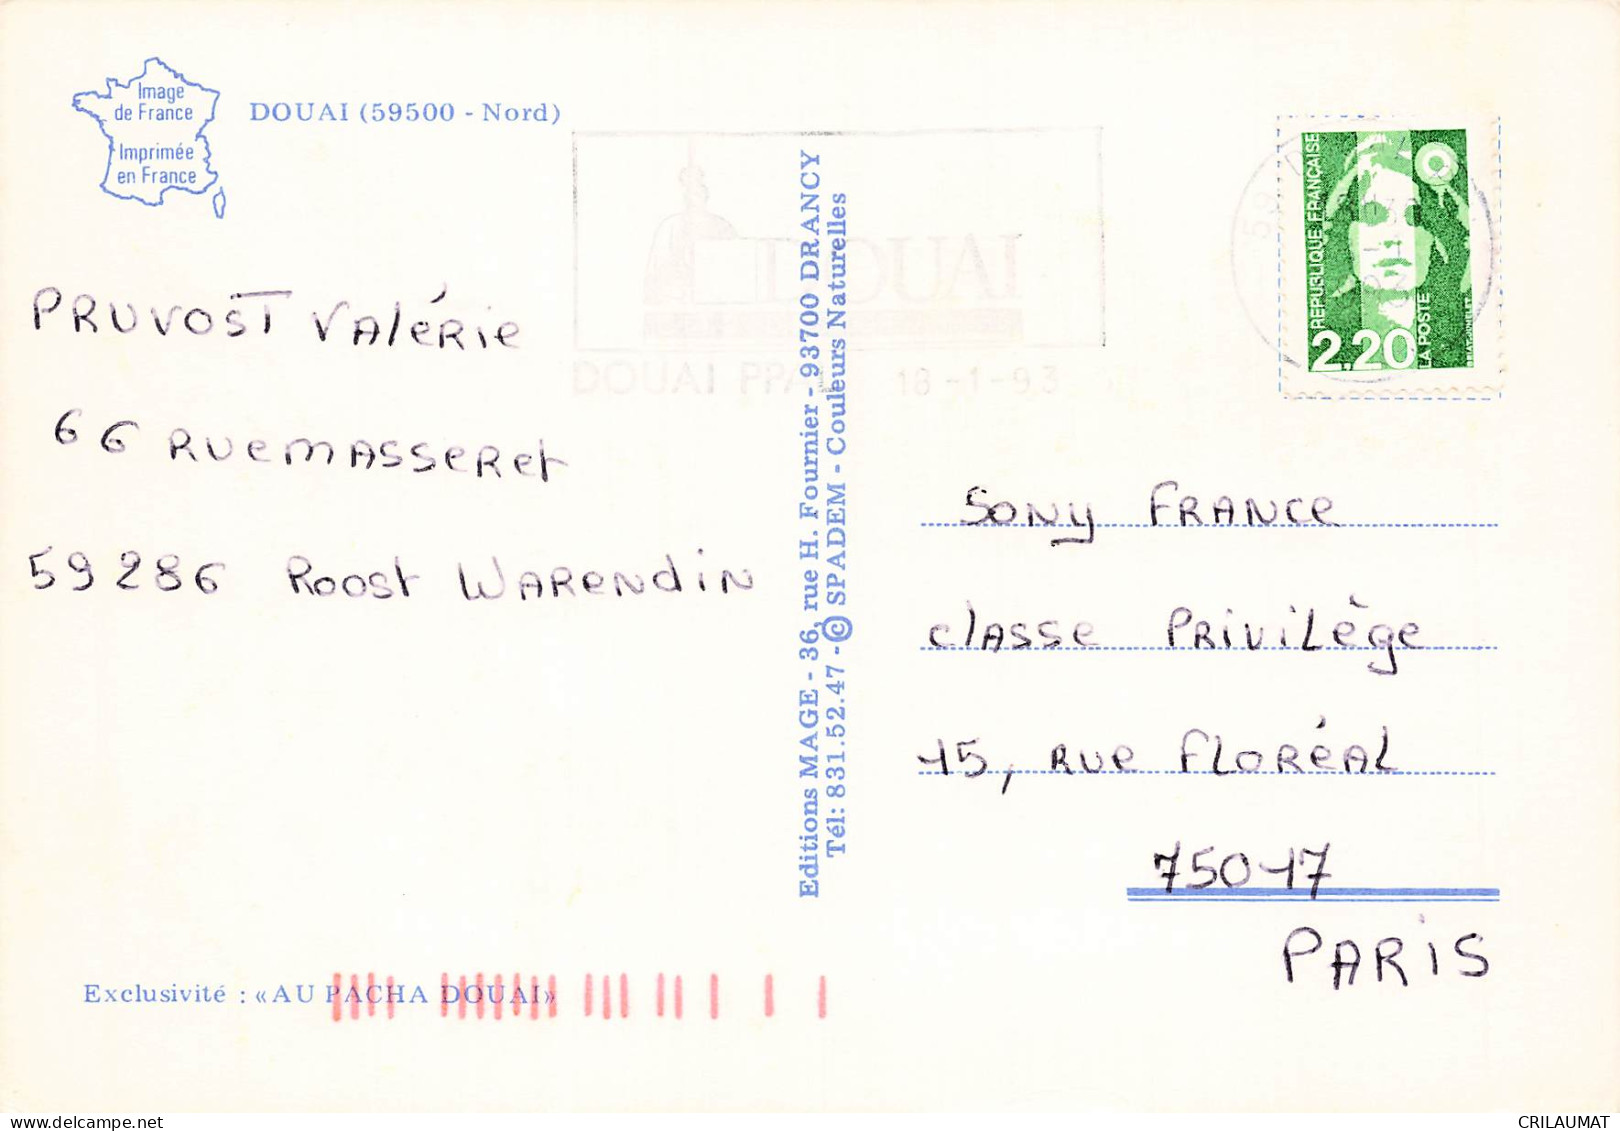 Image
de France
Imprimée
en France
DOUAI (59500 - Nord)
DOUAI
DOUAI PPAL 18-1-93
REPUBLIQUE FRANÇAISE
2,20
LA POSTE
PRUVOST Valérie
66 Rue masseret
59286 Roost Warendin
Editions MAGE - 36, rue H. Fournier - 93700 DRANCY
Tél: 831.52.47 - © SPADEM - Couleurs Naturelles
Sony France
classe Privilège
15, rue Floréal
75017
PARIS
Exclusivité : «AU PACHA DOUAI»
CRILAUMAT